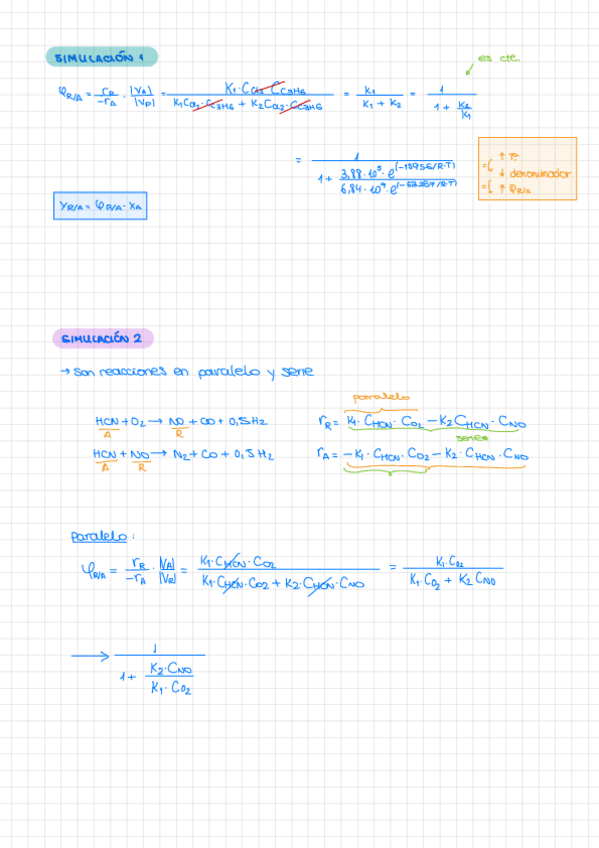 SIMULACIÓN 1
es cte
φR/A = rR/-rA · |VA|/|VR| = K1·Ca2·CC3H6 / (K1Ca2·CC3H6 + K2Ca2·CC3H6) = K1/(K1 + K2) = 1/(1 + K2/K1)
= 1/(1 + 3,88·10⁵·e^(-18956/R·T) / 6,84·10⁴·e^(-63267/R·T))
=( ↑ Tª
↓ denominador
=( ↑ φR/A
YR/A = φR/A · XA
SIMULACIÓN 2
→ son reacciones en paralelo y serie
paralelo
HCN + O2 → NO + CO + 0,5H2
A R
rR = K1·CHCN·CO2 - K2 CHCN·CNO
serie
HCN + NO → N2 + CO + 0,5H2
A R
rA = -K1·CHCN·CO2 - K2·CHCN·CNO
paralelo:
φR/A = rR/-rA · |VA|/|VR| = K1·CHCN·CO2 / (K1·CHCN·CO2 + K2·CHCN·CNO) = K1·CO2 / (K1·CO2 + K2 CNO)
→ 1/(1 + K2·CNO/K1·CO2)